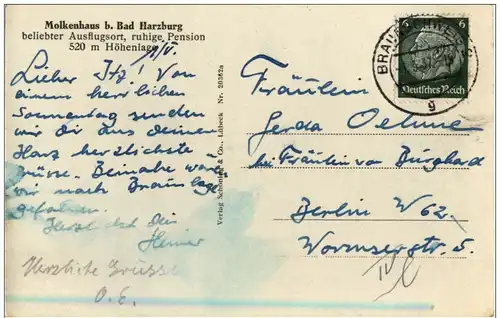 Molkenhaus b. Bad Harzburg
beliebter Ausflugsort, ruhige Pension
520 m Höhenlage
Lieber Itz! Von
einem herrlichen
Sonnentag senden
wir Dir aus Deinem
Harz herzlichste
Grüsse. Beinahe wären
wir nach Braunlage
gefahren.
Herzlichst Dein
Heiner
Herzliche Grüsse
O. E.
Verlag Schöning & Co., Lübeck Nr. 20362a
BRAUNSCHWEIG
g
6
Deutsches Reich
Fräulein
Gerda Oehme
bei Fräulein von Burghard
Berlin W 62.
Wormserstr. 5.
IV